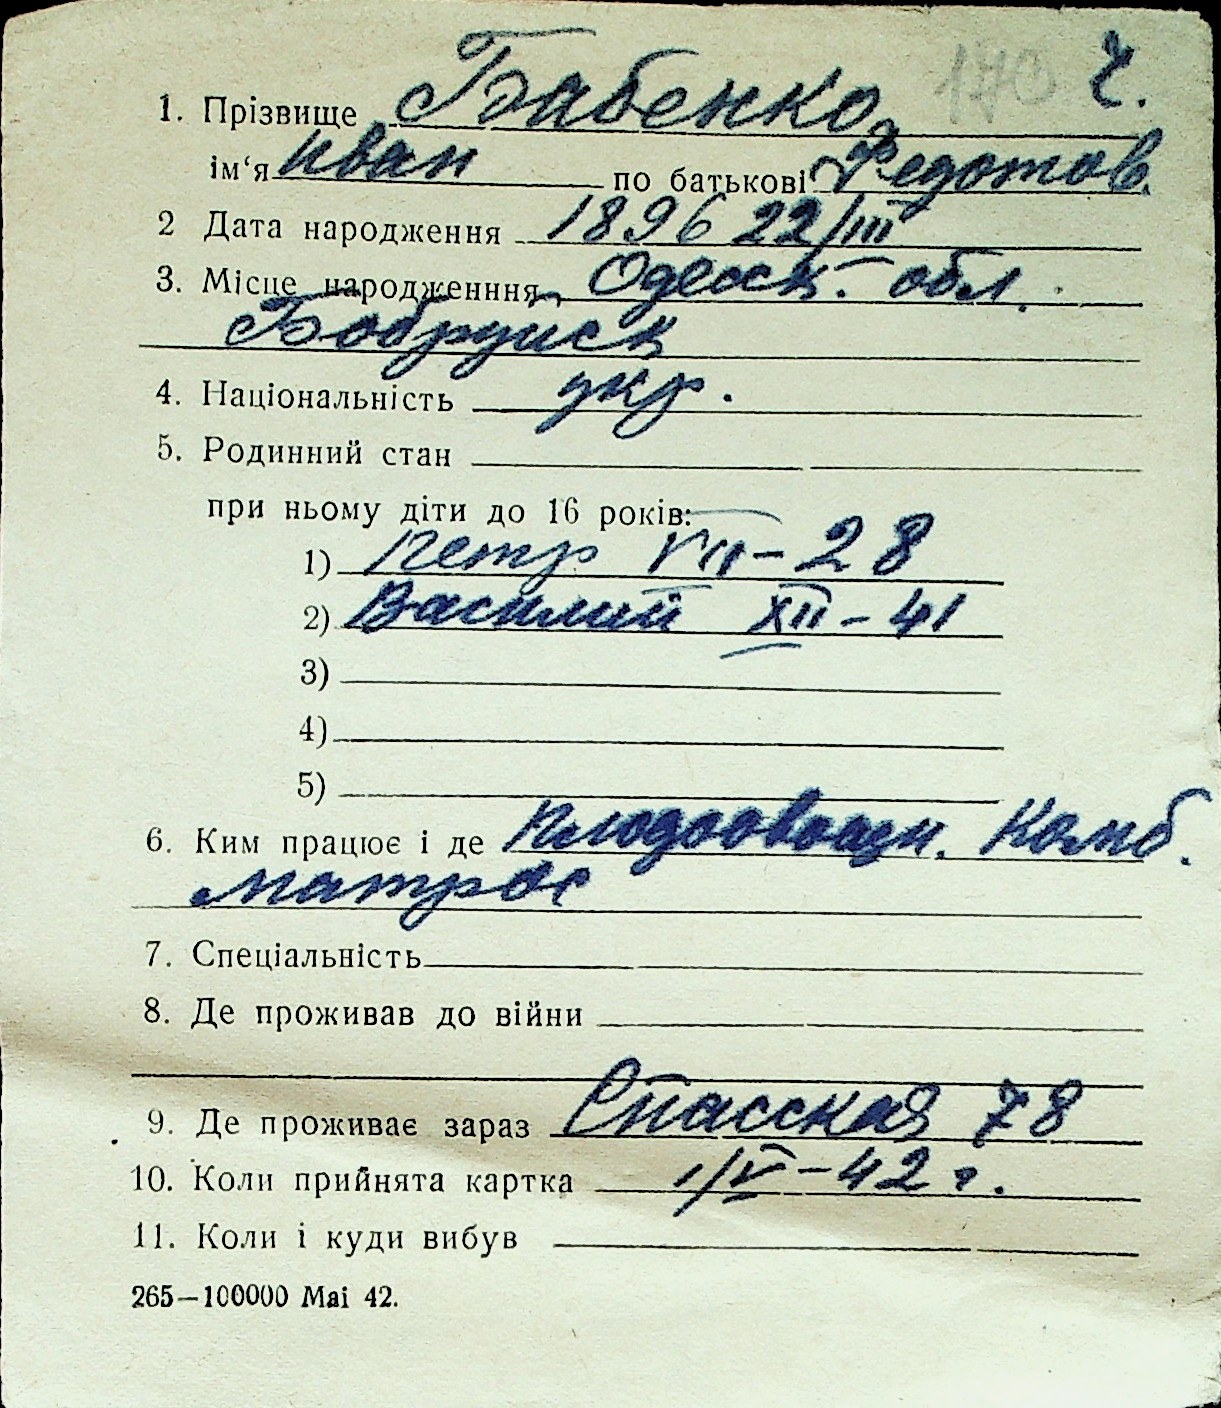 170 ч.
1. Прізвище Бабенко
ім'я Иван по батькові Федотов.
2 Дата народження 1896 22/III
3. Місце народженння Одесск. обл.
Бобруйск
4. Національність укр.
5. Родинний стан
при ньому діти до 16 років:
1) Петр VII-28
2) Василий XII-41
3)
4)
5)
6. Ким працює і де Плодоовощн. Комб.
матрос
7. Спеціальність
8. Де проживав до війни
9. Де проживає зараз Спасская 78
10. Коли прийнята картка 1/V-42 г.
11. Коли і куди вибув
265—100000 Mai 42.